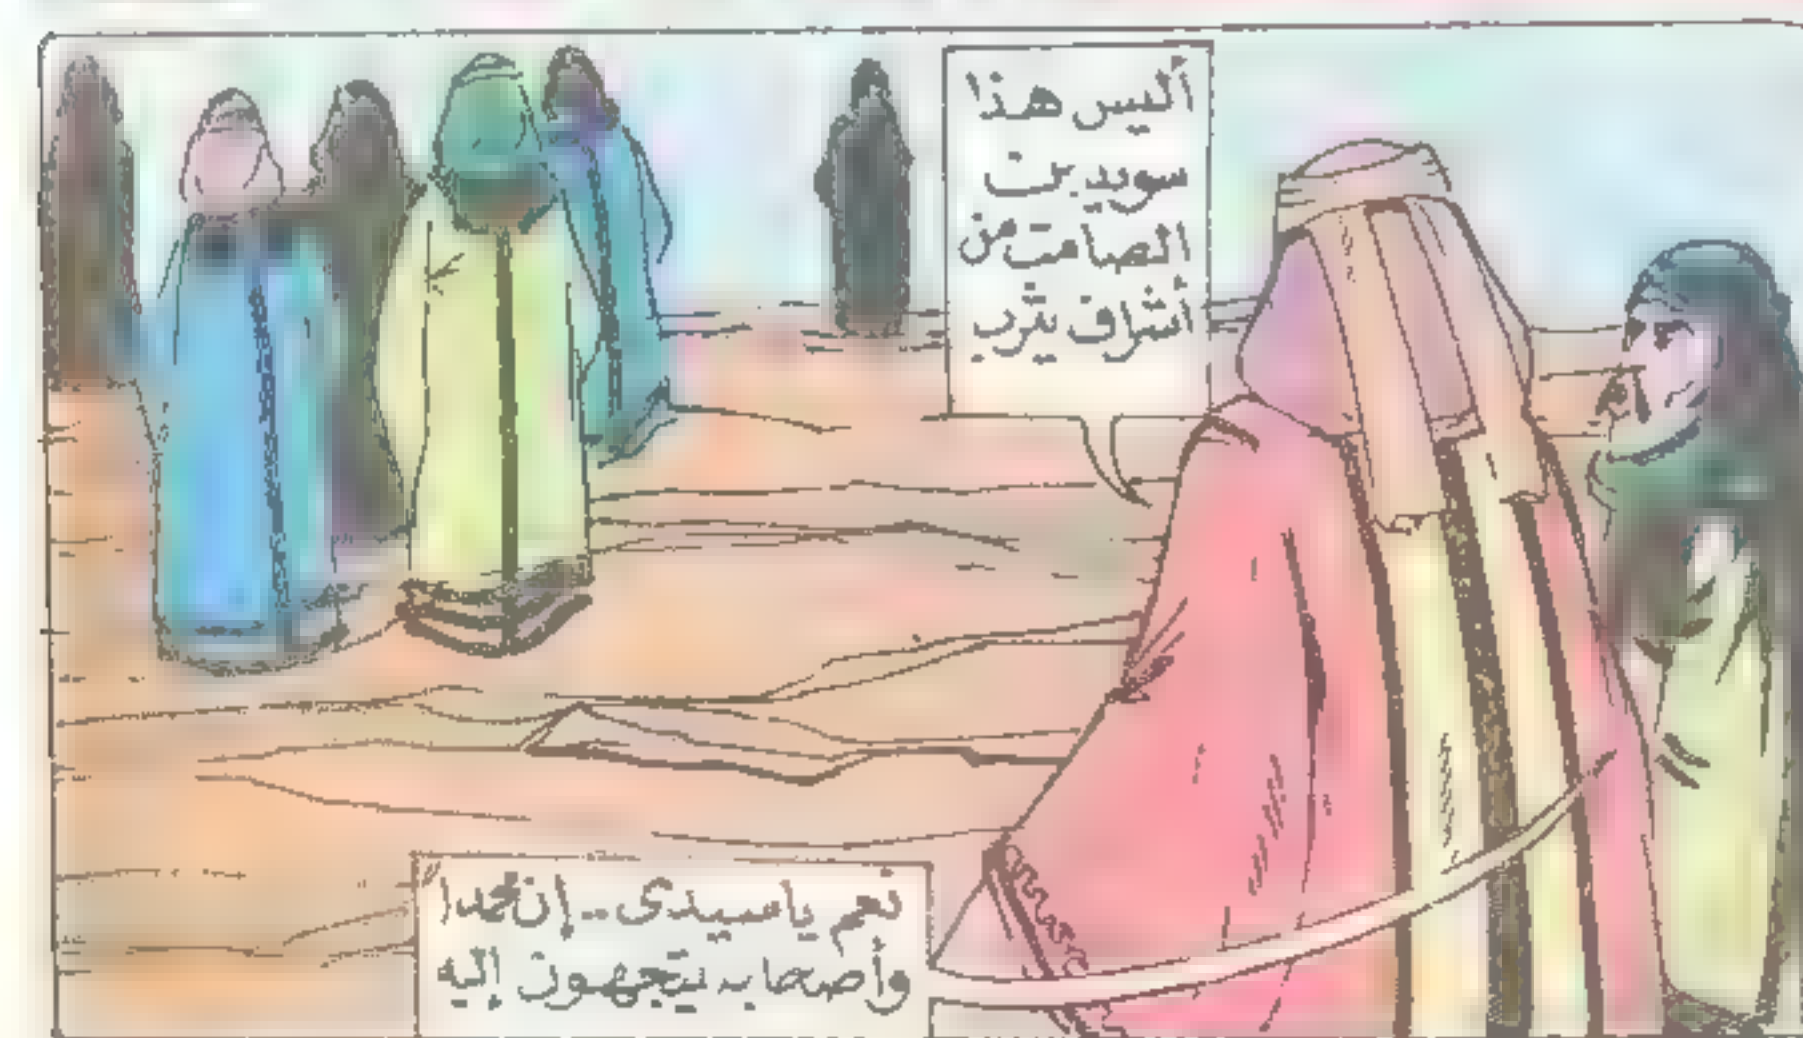 أليس هذا
سويد بن
الصامت من
أشراف يثرب
نعم يا سيدى .. إن محمدا
وأصحابه يتجهون إليه